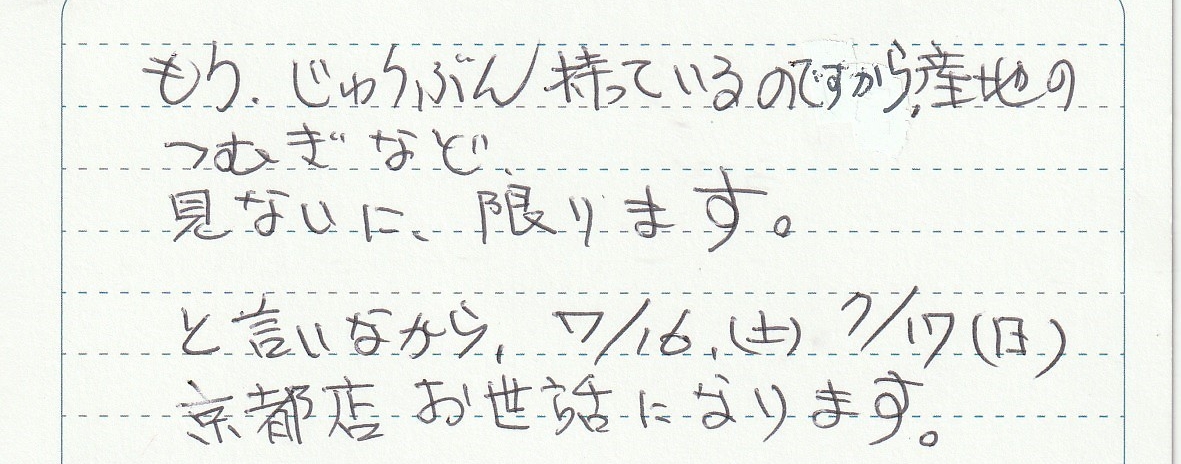 もう、じゅうぶん持っているのですから、産地の
つむぎなど、
見ないに、限ります。
と言いながら、7/16、(土) 7/17(日)
京都店 お世話になります。